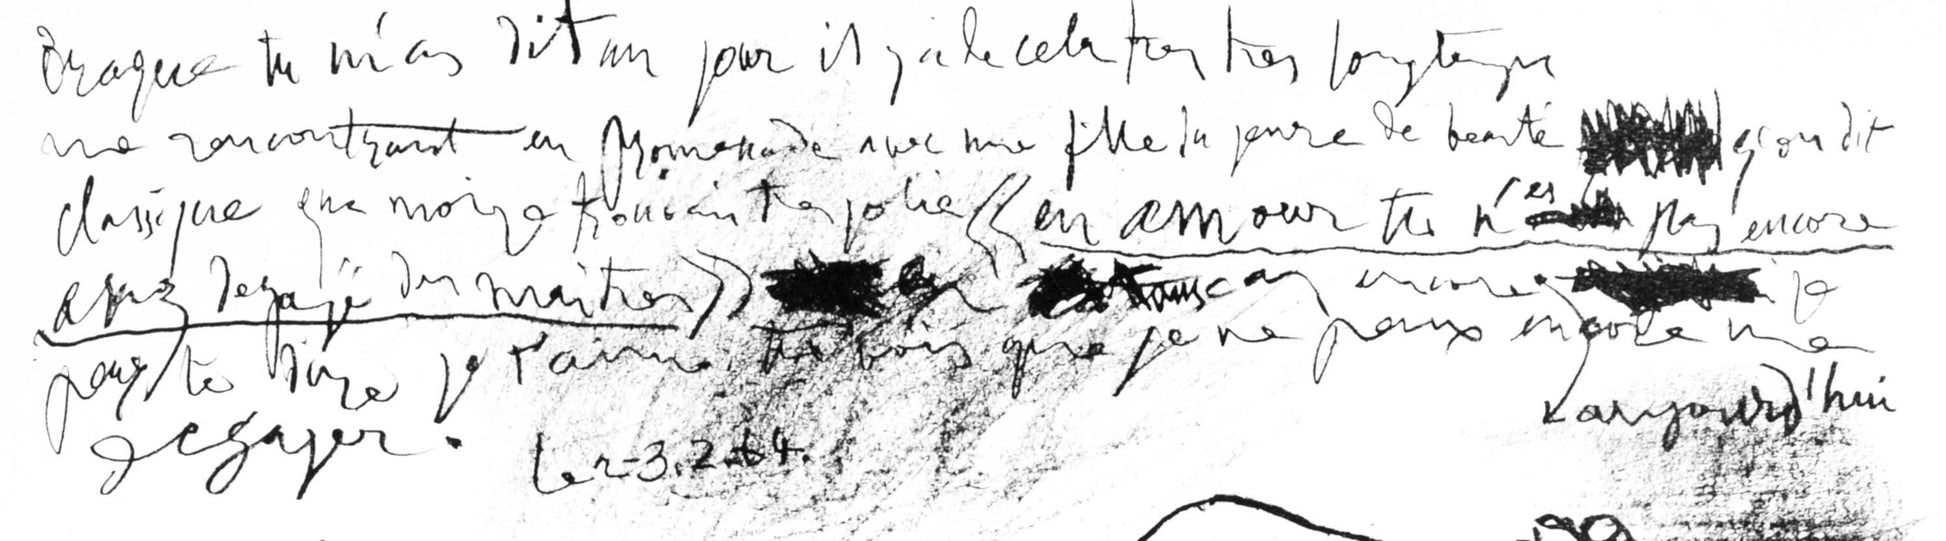 Braque tu m'as dit un jour il y a de cela très très longtemps
me rencontrant en promenade avec une fille du genre de beauté qu'on dit
classique que moi je trouvais très jolie « en amour tu n'es pas encore
assez dégagé des maîtres » en tous cas encore je
peux te dire je t'aime. tu vois que je ne peux encore me
aujourd'hui
dégager. Le 2-3.2.64.